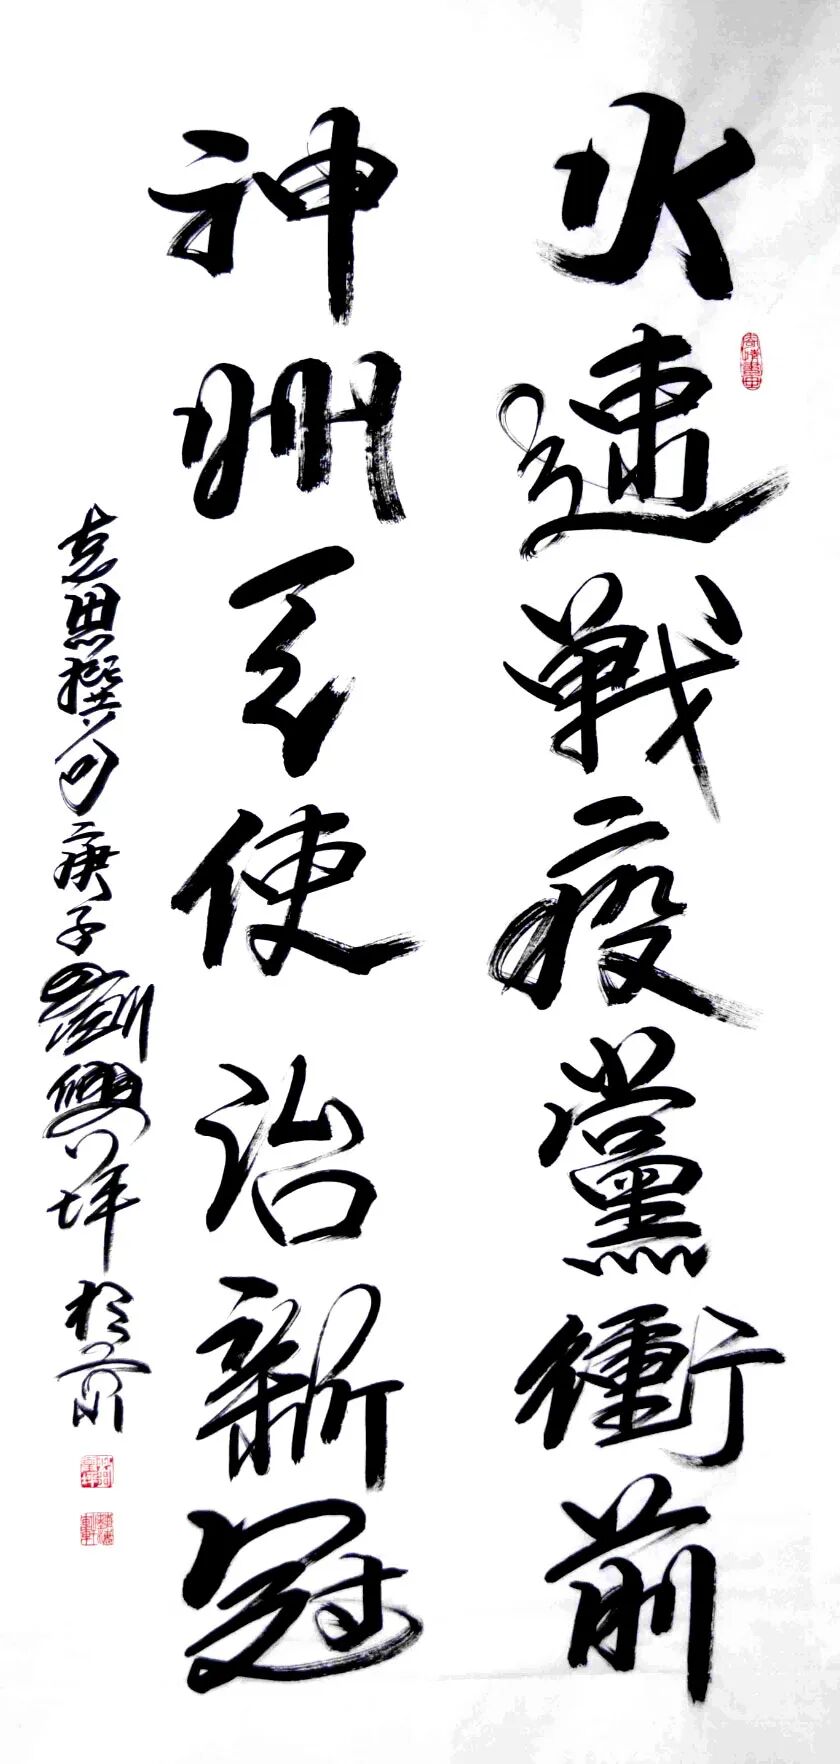 火速戰疫黨衝前
神州天使治新冠
思撰句庚子劉興坪於